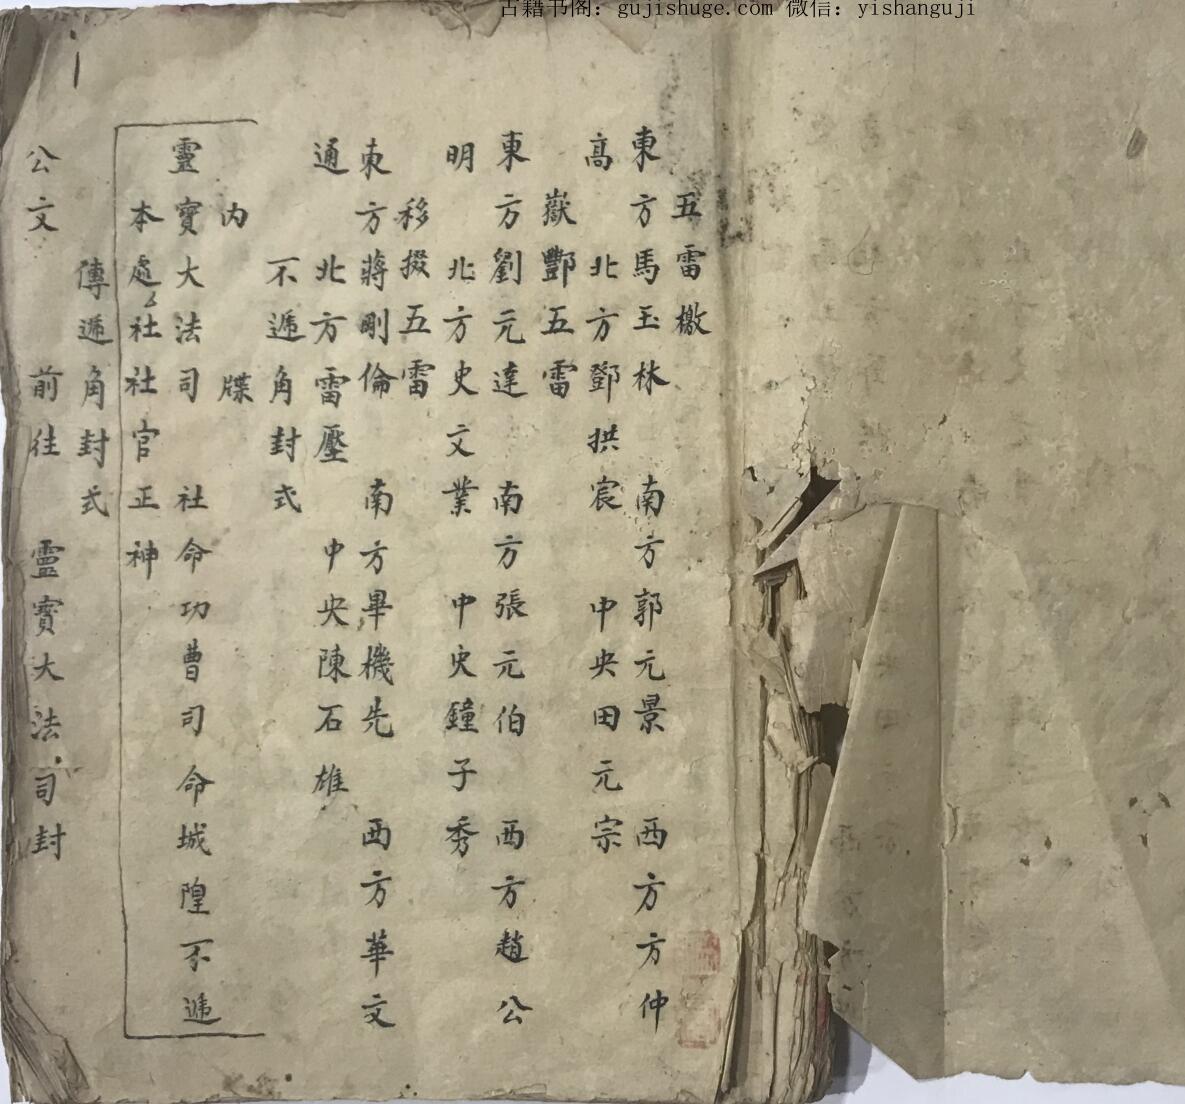 古籍书阁：gujishuge.com 微信：yishanguji
五雷檄
東方馬玉林 南方郭元景 西方方仲
高 北方鄧拱宸 中央田元宗
嶽酆五雷
東方劉元達 南方張元伯 西方趙公
明 北方史文業 中央鐘子秀
移掇五雷
東方蔣剛倫 南方畢機先 西方華文
通 北方雷壓 中央陳石雄
不遞角封式
内 牒
靈寳大法司 社命功曹司命城隍不遞
本處社社官正神
傳遞角封式
公文 前往 靈寳大法司封